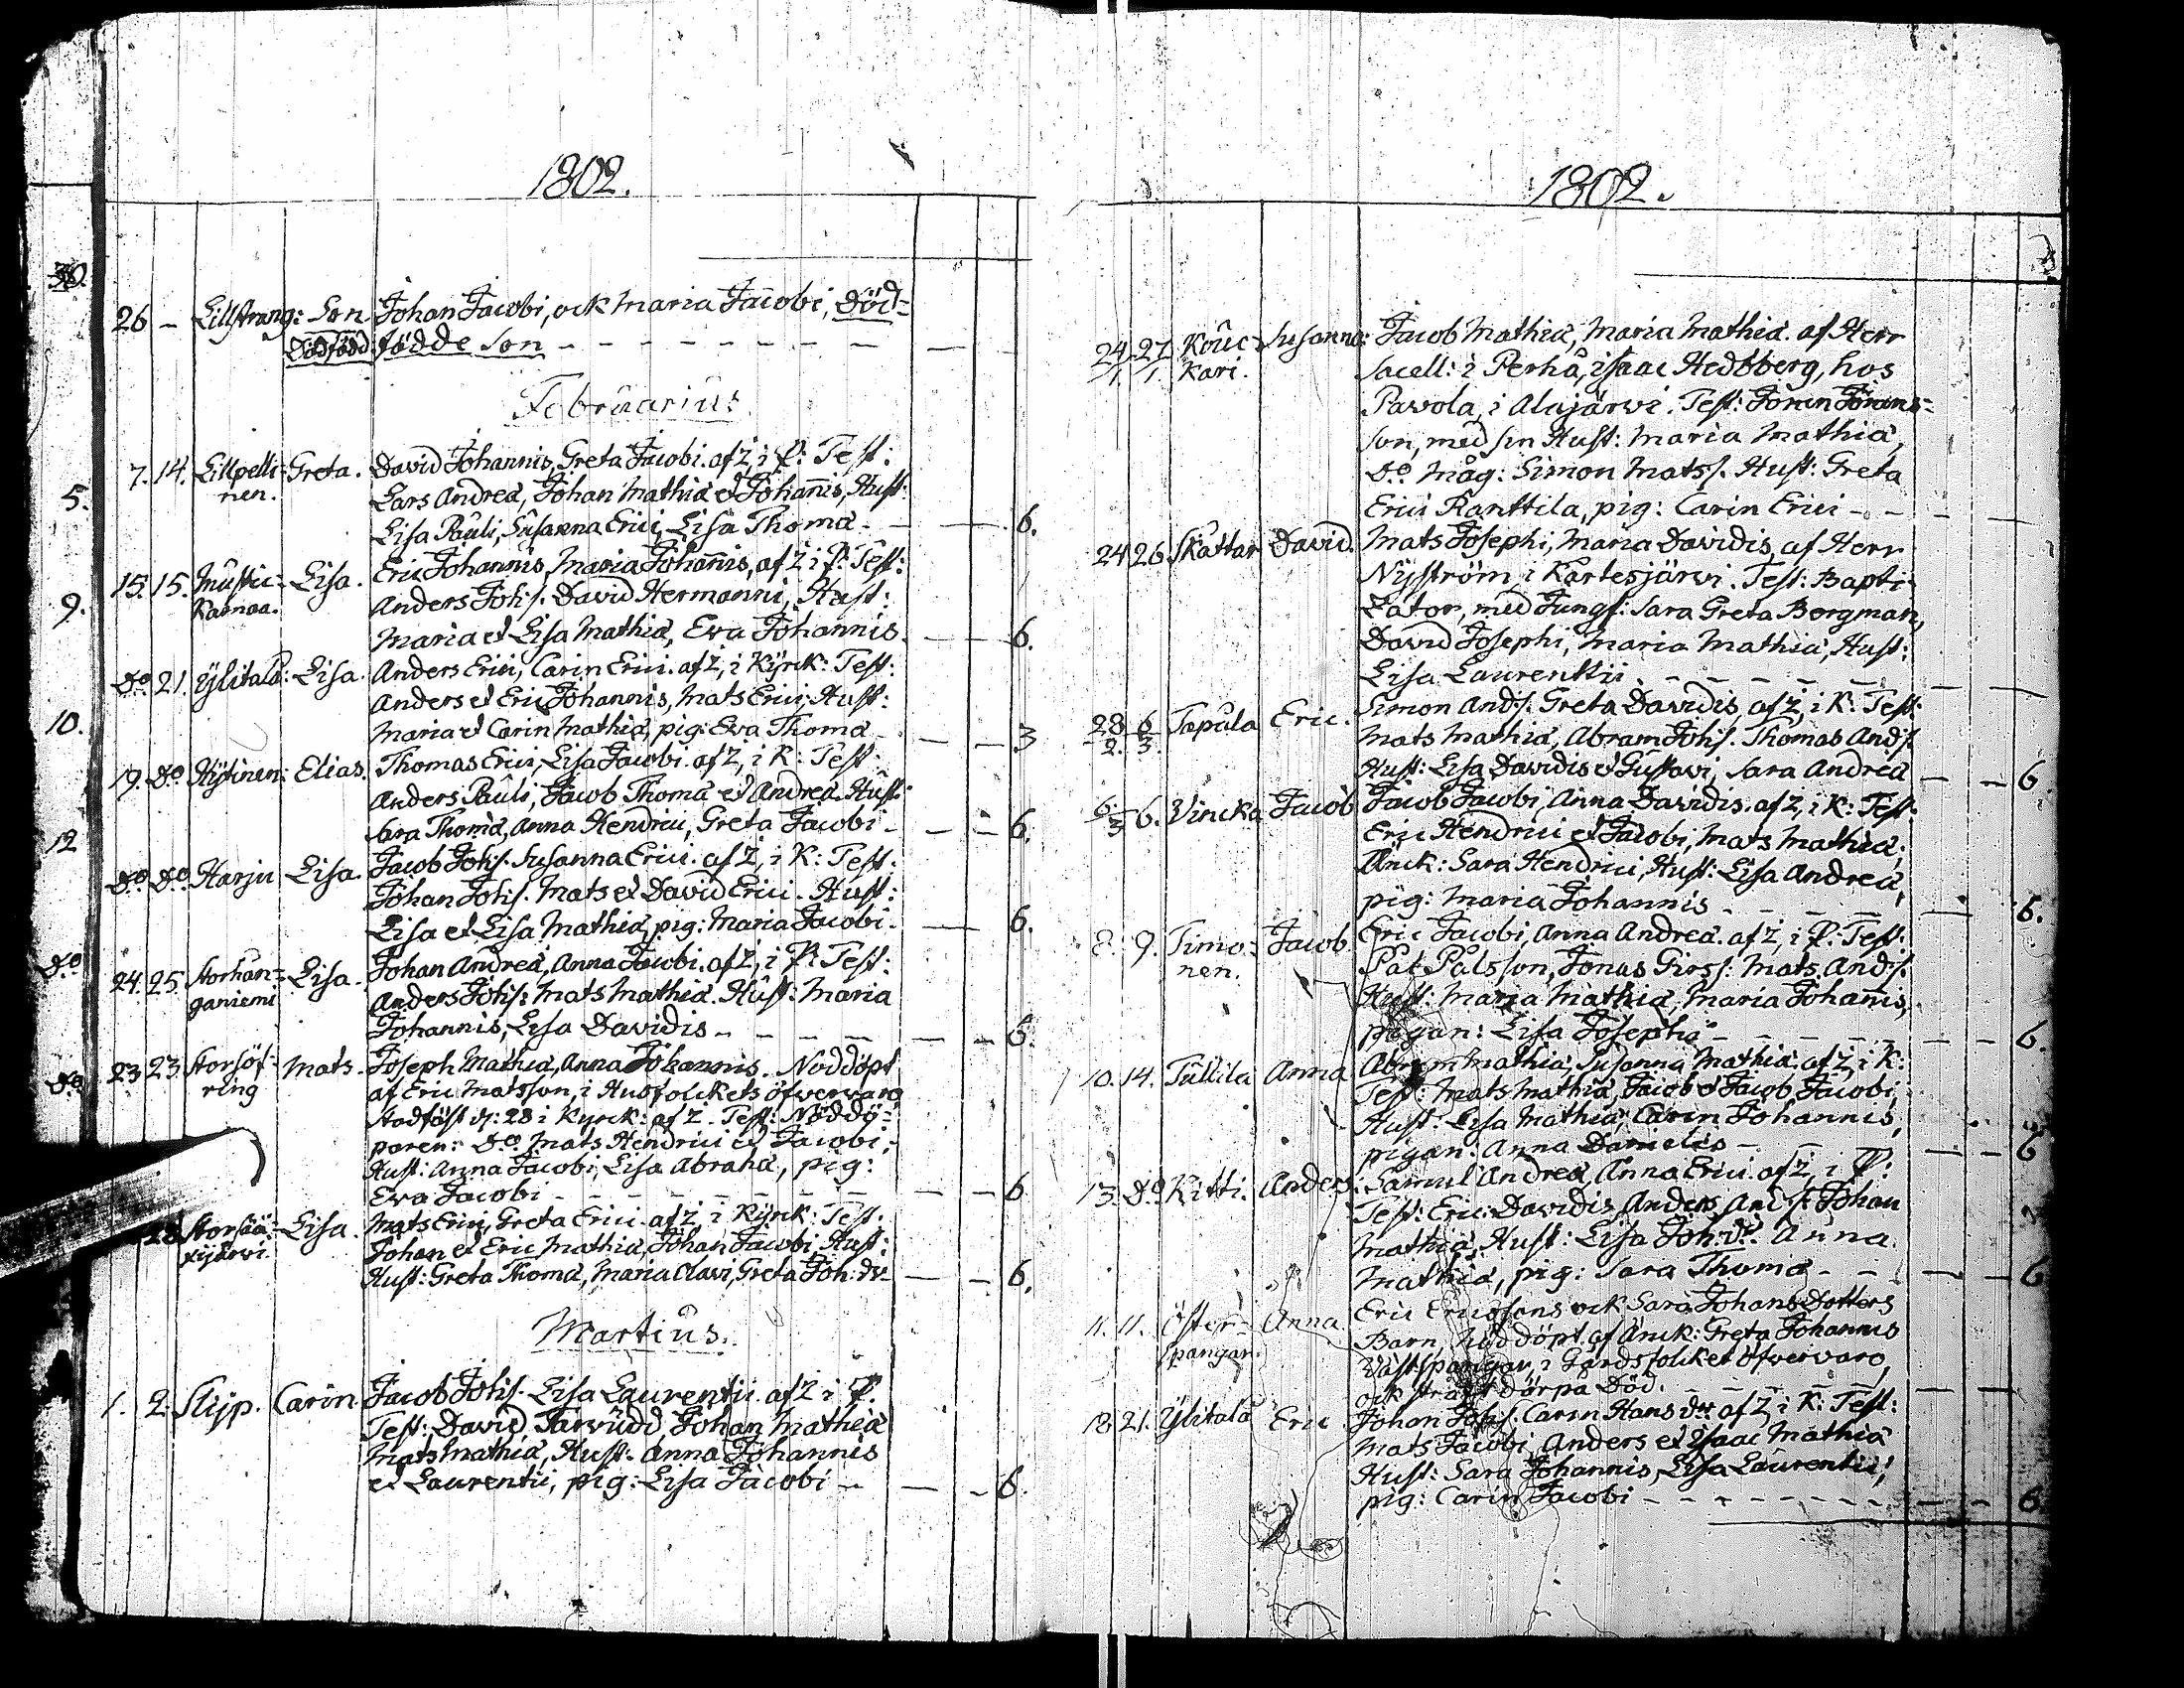 1802.
26 — Lillstrang: Son. Johan Jacobi, ock Maria Jacobi, död-
Dödfödd födde Son — — — — — — — —
Februarius
7. 14. Lillpelli- Greta. David Johannis, Greta Jacobi. af Z, i P: Test:
nen. Lars Andreä, Johan Mathiä et Johannis, Hust:
Lisa Pauli, Susanna Erici, Lisa Thomä — — — 6.
15. 15. Mustic- Lisa. Eric Johannis, Maria Johannis, af Z i P: Test:
kamaa. Anders Johs. David Hermanni, Hust:
Maria et Lisa Mathiä, Eva Johannis. — — — 6.
Do 21. Ylitalo: Lisa. Anders Erici, Carin Erici. af Z, i Kyrck: Test:
Anders et Eric Johannis, Mats Erici, Hust:
Maria et Carin Mathiä, pig: Eva Thomä — — — 3
19. Do Hytinen: Elias. Thomas Erici, Lisa Jacobi. af Z, i K: Test:
Anders Pauli, Jacob Thomä et Andreä. Hust:
Sara Thomä, Anna Hendrici, Greta Jacobi — — — 6.
Do Do Harju Lisa. Jacob Johs. Susanna Erici. af Z, i K: Test:
Johan Johs. Mats et David Erici. Hust:
Lisa et Lisa Mathiä, pig: Maria Jacobi — — 6.
24. 25. Storhan- Lisa. Johan Andreä, Anna Jacobi. af Z, i P: Test:
ganiemi Anders Johs: Mats Mathiä. Hust: Maria
Johannis, Lisa Davidis — — — — — 6.
23 23. Storjöf- Mats. Joseph Mathiä, Anna Johannis. Nöddöpt
ring af Eric Matsson, i Husfolckets öfwerwaro
Stadfäst d: 28 i Kyrck: af Z. Test: Nöddö-
paren: Do Mats Hendrici et Jacobi,
Hust: Anna Jacobi, Lisa Abrahä, pig:
Eva Jacobi — — — — — — — 6
28 Storsää- Lisa. Mats Erici, Greta Erici. af Z, i Kyrck: Test:
xijärwi. Johan et Eric Mathiä, Johan Jacobi, Hust:
Hust: Greta Thomä, Maria Olavi, Greta Joh: dr — — 6.
Martius.
1. 2. Slijp. Carin Jacob Johs. Lisa Laurentii. af Z i P.
Test: David Tarvudd, Johan Mathiä
Mats Mathiä, Hust: Anna Johannis
et Laurentii, pig: Lisa Jacobi — — — 6
30.
5.
9.
10.
12
Do
Do
1802.
24/1. 27/1. Kouc- Susanna: Jacob Mathiä, Maria Mathiä. af Herr
kari. Sacell: i Perho, Isaac Hedberg, hos
Pavola, i Alajärvi. Test: Jöran Jörans-
son, med sin Hust: Maria Mathiä,
Do måg: Simon Matss. Hust: Greta
Erici Ranttila, pig: Carin Erici — — —
24 26 Skattar David. Mats Josephi, Maria Davidis, af Herr
Nyström, i Kartesjärvi. Test: Bapti-
zator, med Jungf: Sara Greta Bergman,
David Josephi, Maria Mathiä, Hust:
Lisa Laurentii. — — — — — —
28/2. 6/3. Tapula Eric. Simon Ands. Greta Davidis, af Z, i K: Test:
Mats Mathiä, Abram Johs. Thomas Ands.
Hust: Lisa Davidis et Gustavi, Sara Andreä — — 6.
6/3 6. Vincka Jacob Jacob Jacobi, Anna Davidis. af Z, i K: Test:
Eric Hendrici et Jacobi, Mats Mathiä;
Änck: Sara Hendrici, Hust: Lisa Andreä,
pig: Maria Johannis — — — — — 6.
8. 9. Timo- Jacob. Eric Jacobi, Anna Andreä. af Z, i P: Test:
nen. Påt Pålsson, Jonas Girss: Mats Ands.
Hust: Maria Mathiä, Maria Johannis,
pigan: Lisa Josephi — — — — — 6.
10. 14. Tullila Anna Abram Mathiä, Susanna Mathiä. af Z, i K:
Test: Mats Mathiä, Jacob et Jacob Jacobi,
Hust: Lisa Mathiä, Carin Johannis,
pigan: Anna Danielis — — — 6
13. Do Kitti. Anders. Samul Andreä, Anna Erici. af Z, i P:
Test: Eric Davidis, Anders Ands. Johan
Mathiä, Hust: Lisa Joh: dr. Anna
Mathiä, pig: Sara Thomä — — — — 6
11. 11. Öster- Anna. Eric Ericssons ock Sara Johans Dotters
spangar. Barn, nöddöpt af Änck: Greta Johannis
Västspangar, i Gårdsfolcket öfwervaro,
ock straxt därpå Död. — — — —
18. 21. Ylitalo Eric Johan Johs. Carin Hans dr. af Z, i K: Test:
Mats Jacobi, Anders et Isaac Mathiä
Hust: Sara Johannis, Lisa Laurentii,
pig: Carin Jacobi — — — — — — — 6.